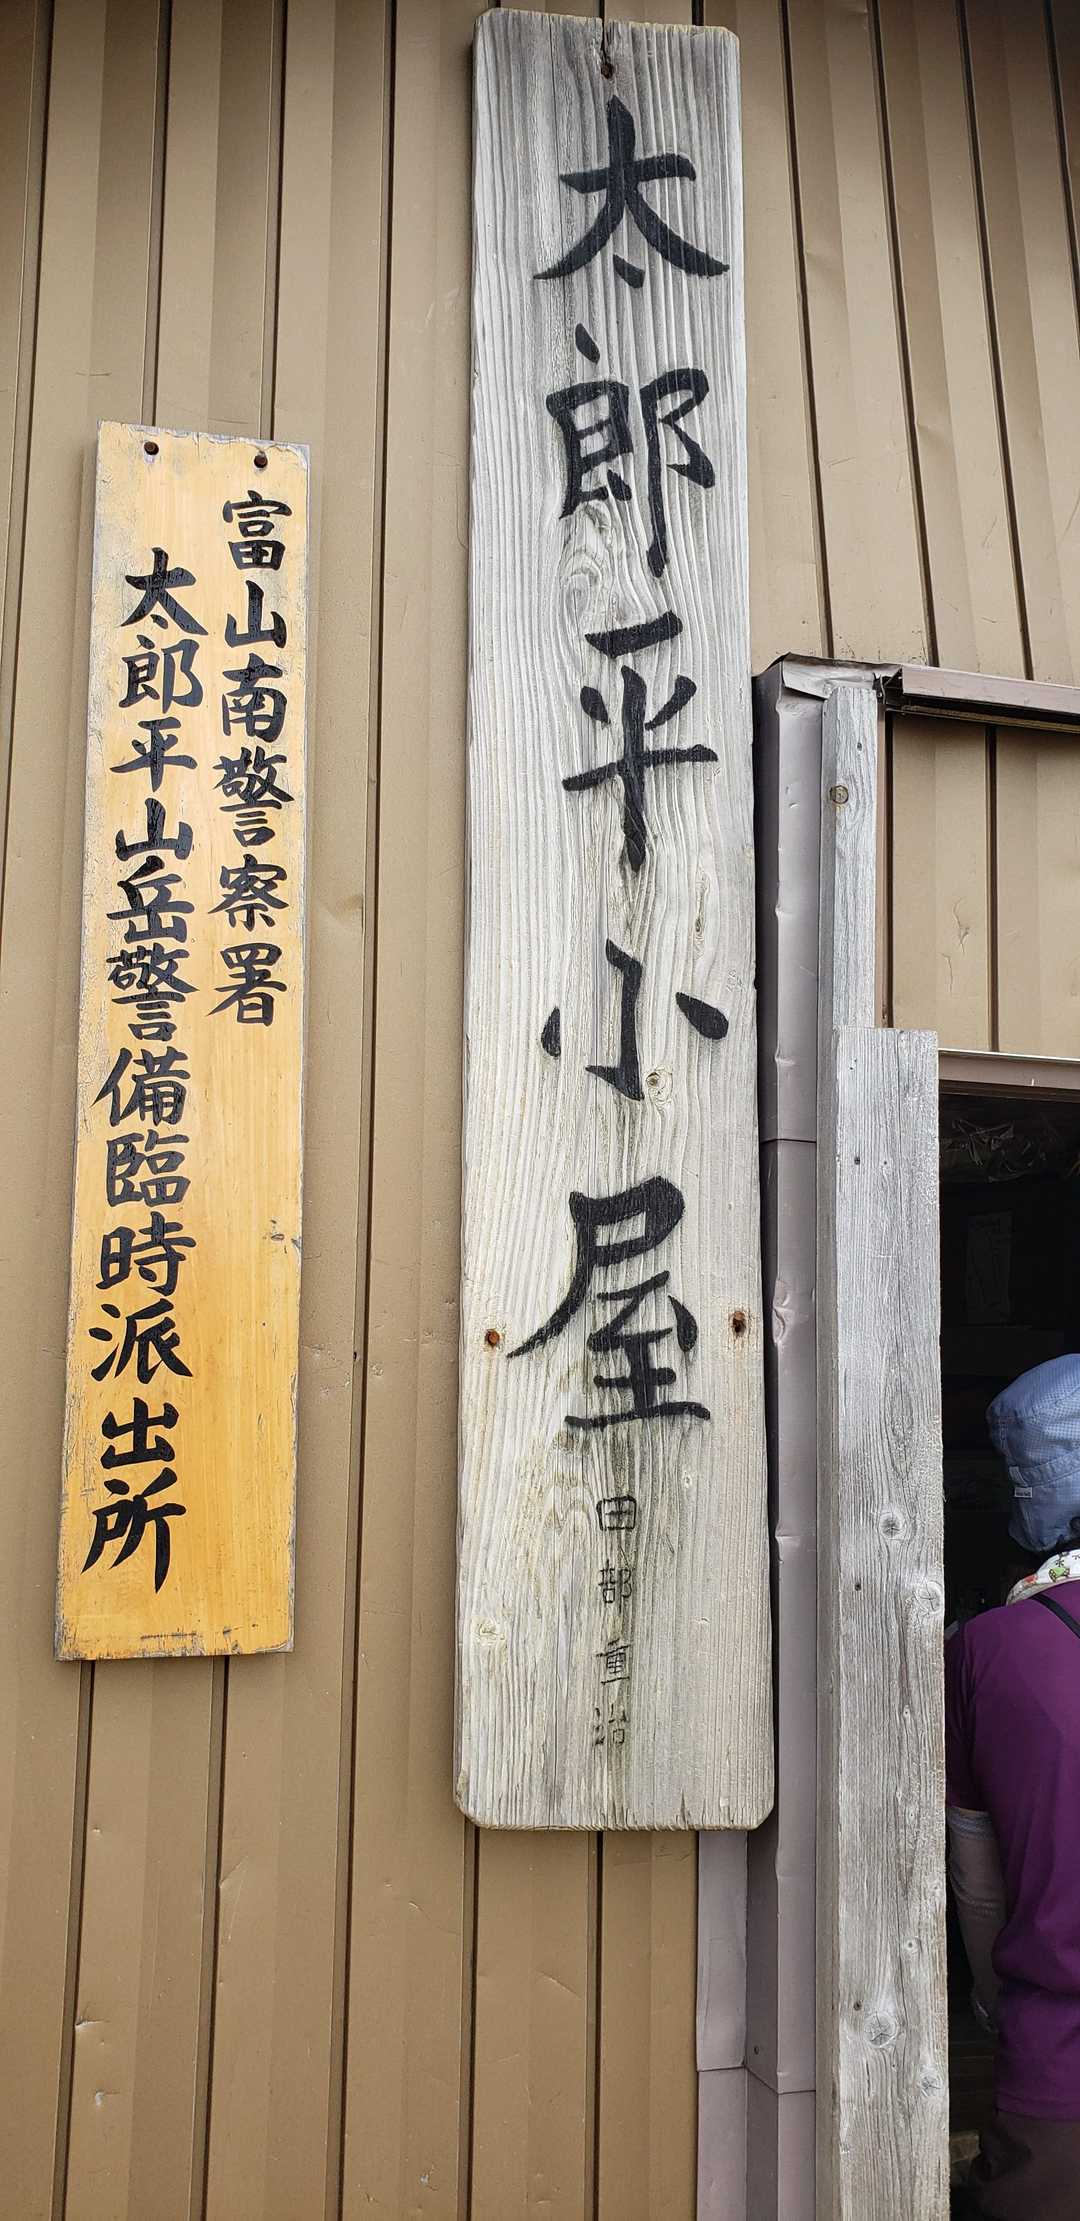 太郎平小屋
田部重治
富山南警察署
太郎平山岳警備臨時派出所